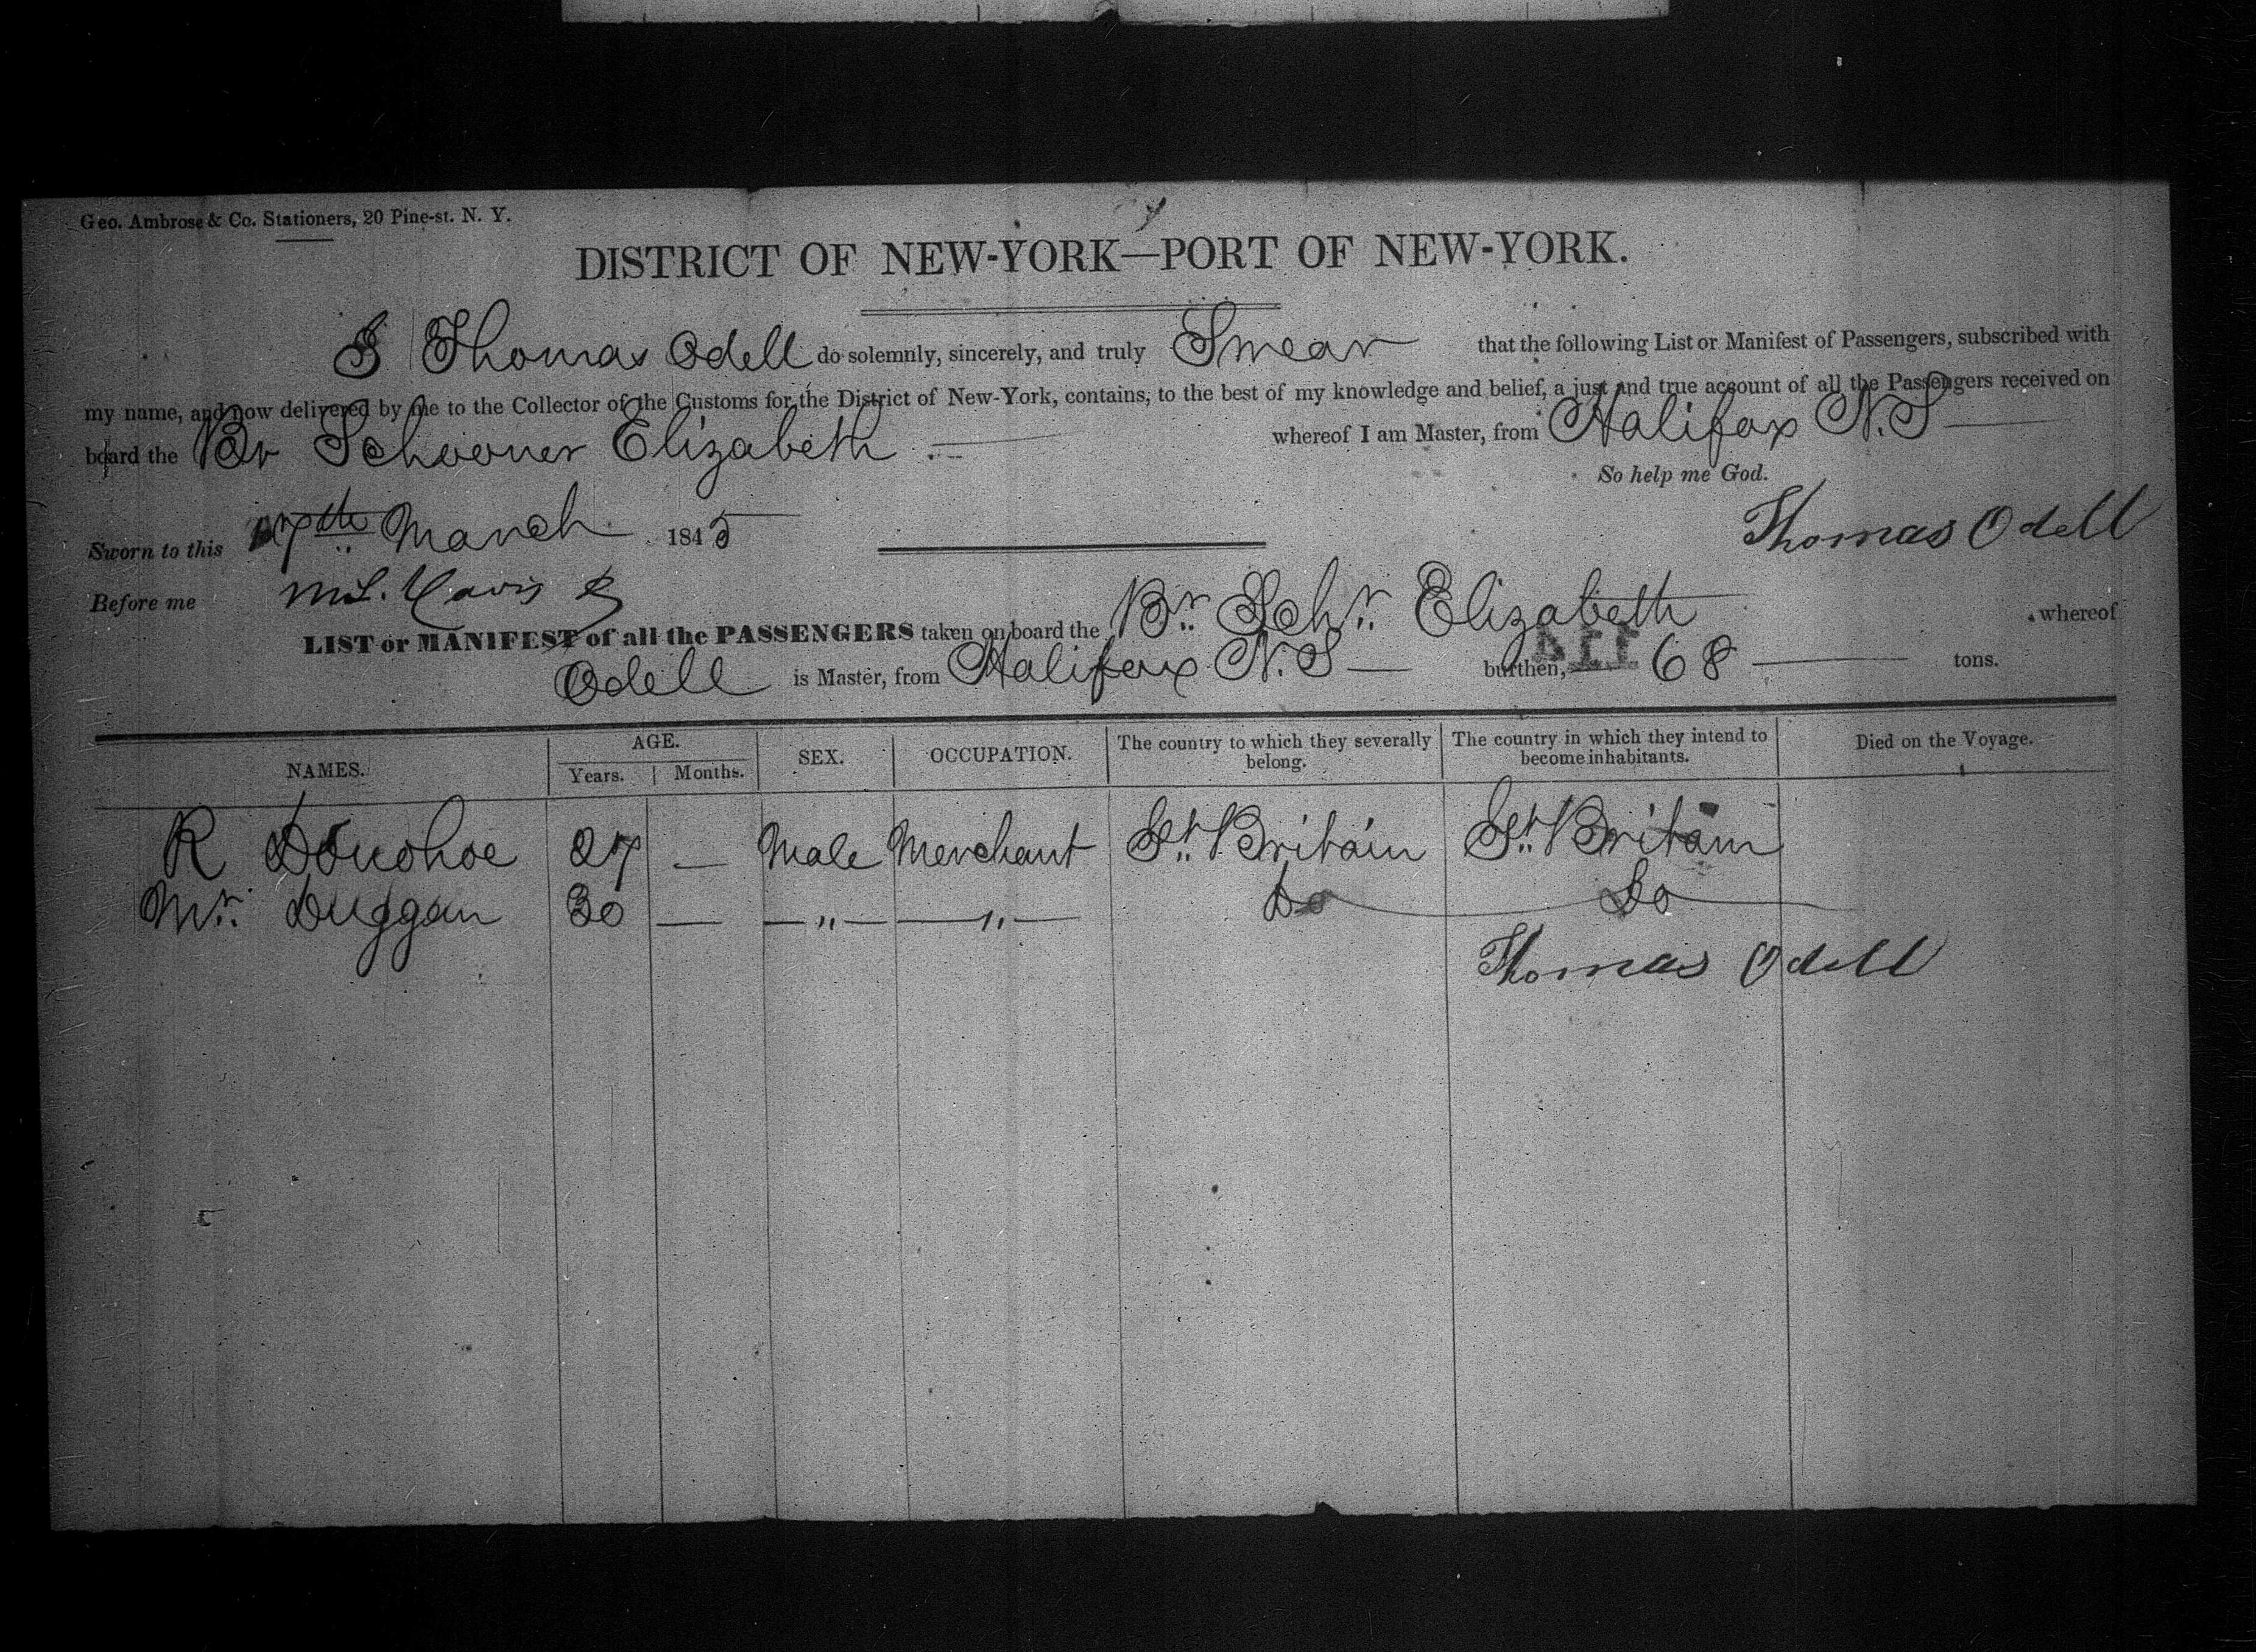 Geo. Ambrose & Co. Stationers, 20 Pine-st. N. Y.
DISTRICT OF NEW-YORK—PORT OF NEW-YORK.
I Thomas Odell do solemnly, sincerely, and truly Swear that the following List or Manifest of Passengers, subscribed with
my name, and now delivered by me to the Collector of the Customs for the District of New-York, contains, to the best of my knowledge and belief, a just and true account of all the Passengers received on
board the Br Schooner Elizabeth whereof I am Master, from Halifax N.S
So help me God.
Sworn to this 17th March 1845 Thomas Odell
Before me
LIST or MANIFEST of all the PASSENGERS taken on board the Br. Schr. Elizabeth whereof
Odell is Master, from Halifax N.S burthen, 68 tons.
NAMES. AGE. SEX. OCCUPATION. The country to which they severally belong. The country in which they intend to become inhabitants. Died on the Voyage.
Years. Months.
R Donohoe 27 — Male Merchant Gt. Britain Gt. Britain
Mr. Duggan 30 — — " — — " — Do Do
Thomas Odell